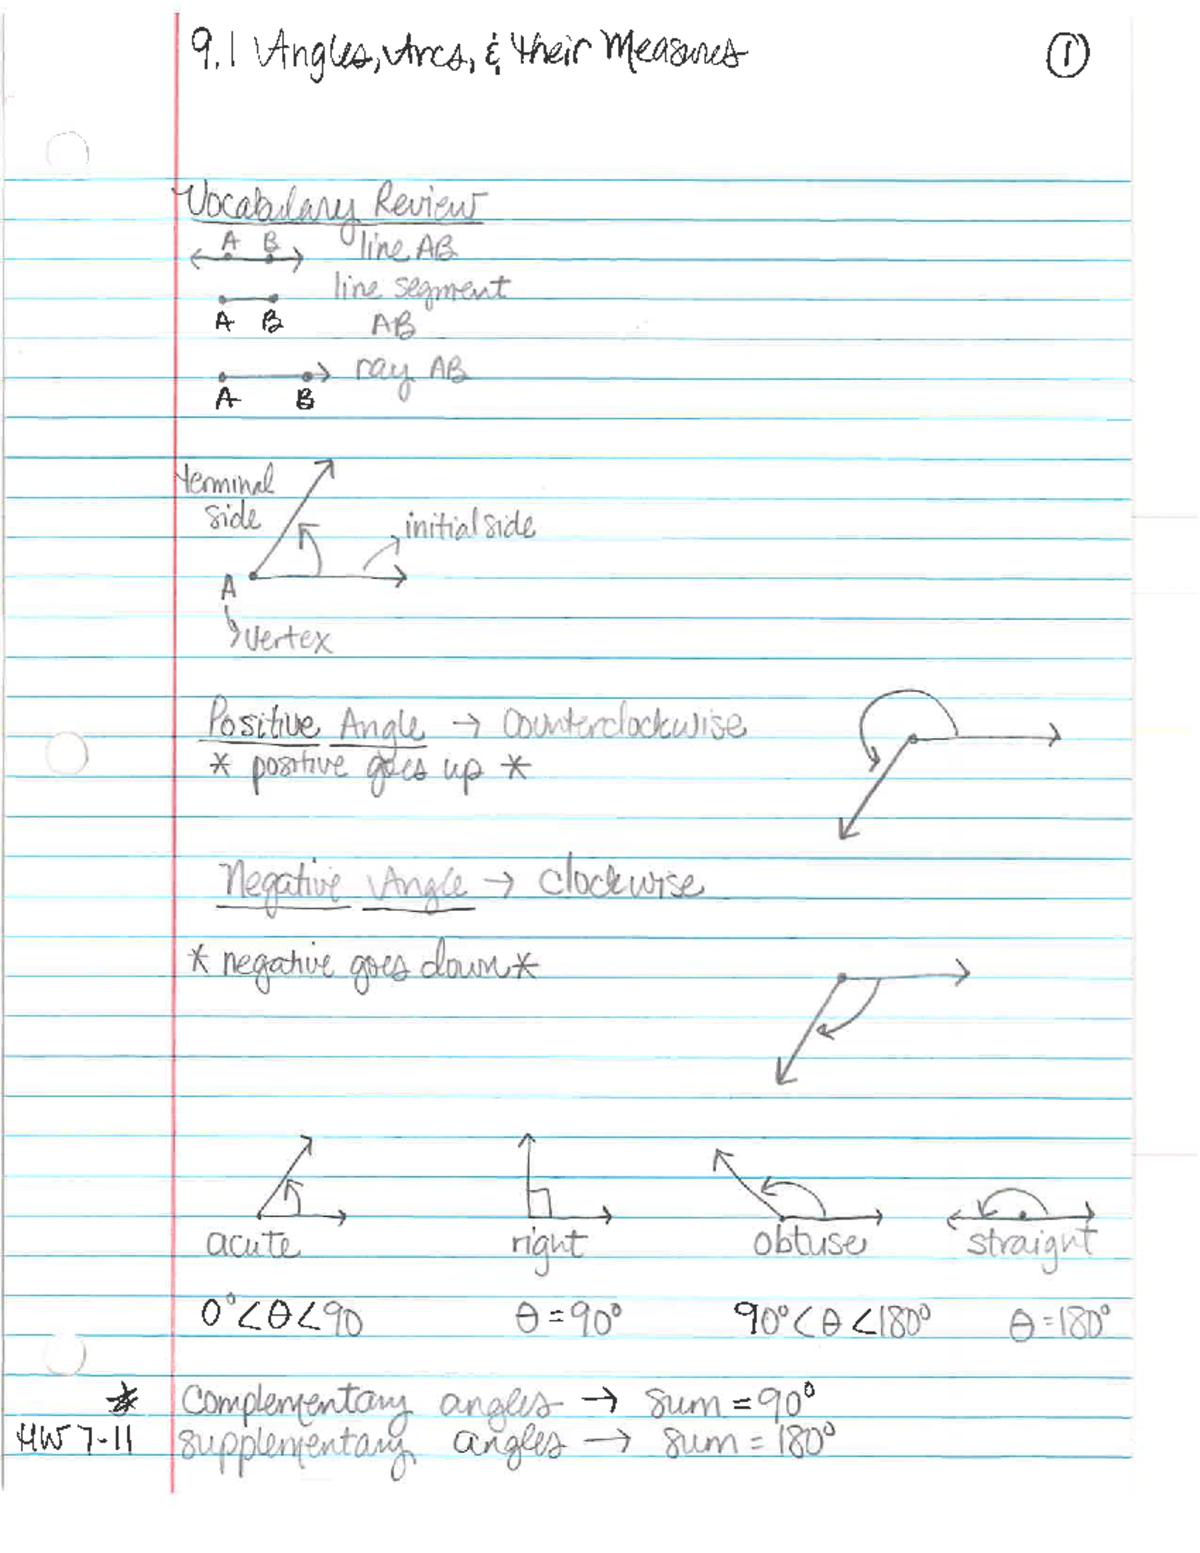 9.1 Angles, Arcs, & their Measures
①
Vocabulary Review
A B line AB
line segment
A B AB
ray AB
A B
terminal
side
initial side
A
vertex
Positive Angle → Counterclockwise
* positive goes up *
Negative Angle → Clockwise
* negative goes down *
acute right obtuse straight
0°<θ<90 θ=90° 90°<θ<180° θ=180°
* Complementary angles → sum = 90°
HW 7-11 supplementary angles → sum = 180°